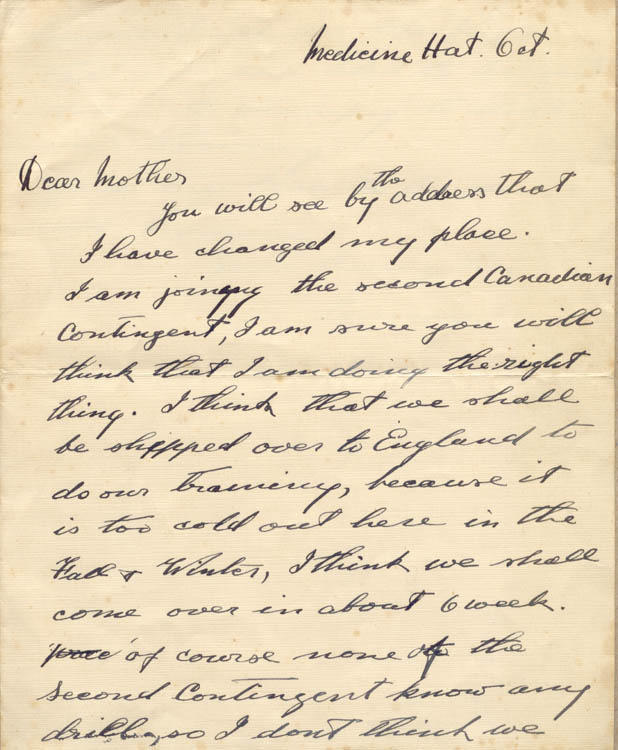 Medicine Hat. Oct.
Dear Mother
You will see by the address that
I have changed my place.
I am joinyng the second Canadian
Contingent, I am sure you will
think that I am doing the right
thing. I think that we shall
be shipped over to England to
do our training, because it
is too cold out here in the
Fall & Winter, I think we shall
come over in about 6 week.
of course none of the
second Contingent know any
drill, so I dont think we